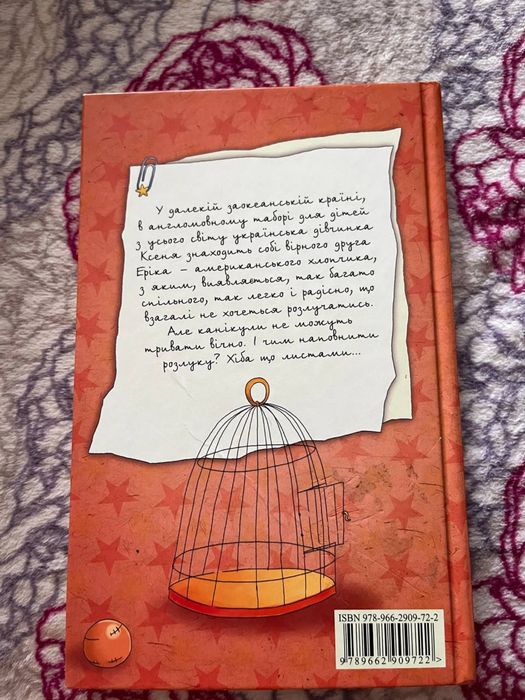 У далекій заокеанській країні,
в англомовному таборі для дітей
з усього світу українська дівчинка
Ксеня знаходить собі вірного друга
Еріка – американського хлопчика,
з яким, виявляється, так багато
спільного, так легко і радісно, що
взагалі не хочеться розлучатись.
Але канікули не можуть
тривати вічно. І чим наповнити
розлуку? Хіба що листами...
ISBN 978-966-2909-72-2
9 789662 909722 >